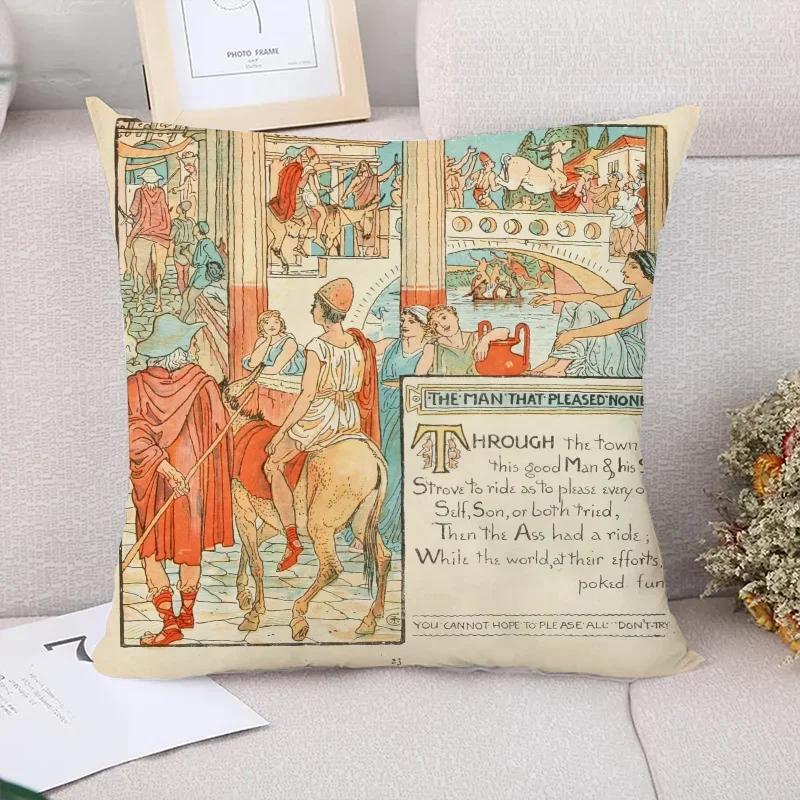 PHOTO FRAME
THE MAN THAT PLEASED NONE
THROUGH the town
this good Man & his S
Strove to ride as to please every o
Self, Son, or both tried,
Then the Ass had a ride;
While the world, at their efforts,
poked fun
YOU CANNOT HOPE TO PLEASE ALL DON'T TRY
23
7